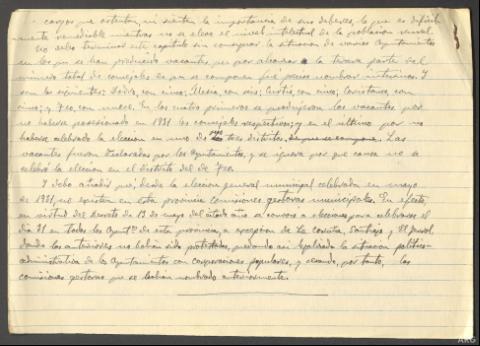 cargos que ostentan, ni sienten la importancia de sus deberes, lo que es dificil
mente remediable mientras no se eleve el nivel intelectual de la población rural.
No debo terminar este capítulo sin consignar la situación de varios Ayuntamientos
en los que se han producido vacantes que por alcanzar a la tercera parte del
número total de concejales de que se componen fué preciso nombrar interinos. Y
son los siguientes: con cinco; con seis; Curtis, con cinco; con
cinco; y con nueve. En los cuatro primeros se produjeron las vacantes por
no haberse posesionado en 1931 los concejales respectivos; y en el último por no
haberse celebrado la elección en uno de tres distritos, de que se compone. Las
vacantes fueron declaradas por los Ayuntamientos, y se ignora por qué causa no se
celebró la elección en el distrito del de
Y debo añadir que, desde la elección general municipal celebrada en mayo
de 1931, no existen en esta provincia comisiones gestoras municipales. En efecto,
en virtud del decreto de 13 de mayo del citado año se convocó a elecciones para celebrarse el
día 31 en todos los Ayuntos de esta provincia, a excepción de La Coruña, Santiago, y El Ferrol
donde las anteriores no habían sido protestadas, quedando así legalizada la situación político-
administrativa de los Ayuntamientos con corporaciones populares, y cesando, por tanto, las
comisiones gestoras que se habían nombrado anteriormente.
ARG